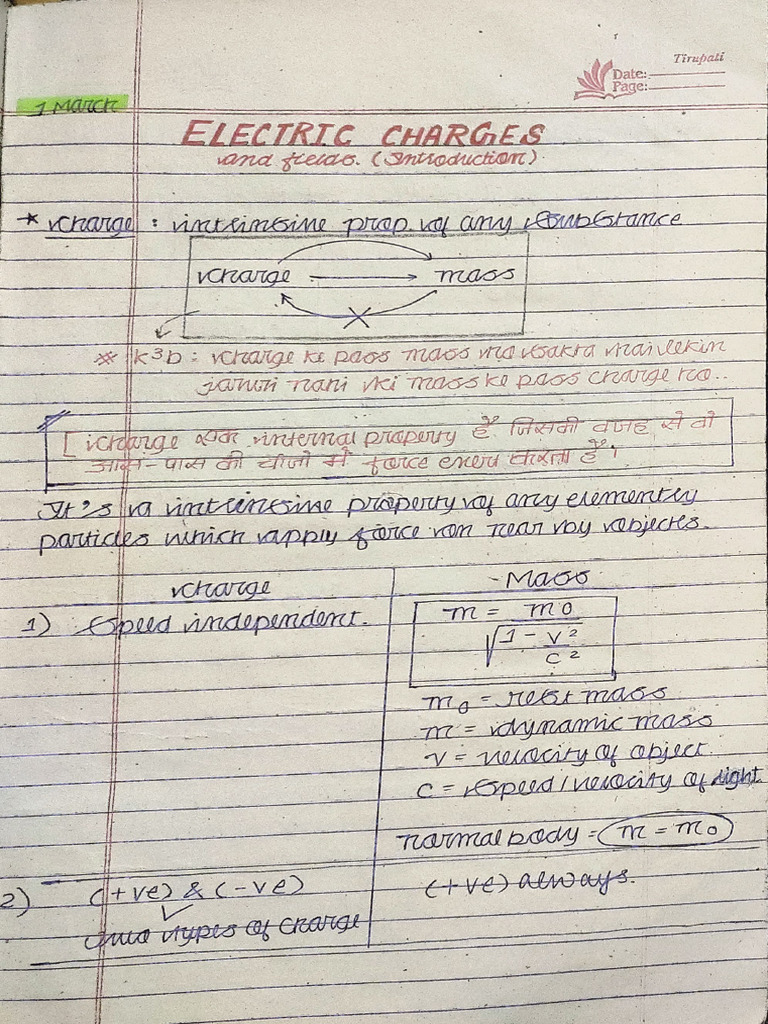 Tirupati
Date:
Page:
1 March
ELECTRIC CHARGES
and fields. (Introduction)
* charge : intrinsine prop. of any substance
charge → mass
* K³B : charge ke pass mass ho sakta hai lekin
jaruri nahi ki mass ke pass charge ho..
[ charge एक internal property हैं जिसकी वजह से वो
आस-पास की चीजो में force exert करता हैं।
It's a intrinsine property of any elementry
particles which apply force on near by objects.
charge Mass
1) Speed independent. m = m0
√1 - v²
c²
m0 = rest mass
m = dynamic mass
v = velocity of object
c = speed / velocity of light
normal body = m = m0
2) (+ve) & (-ve) (+ve) always.
two types of charge